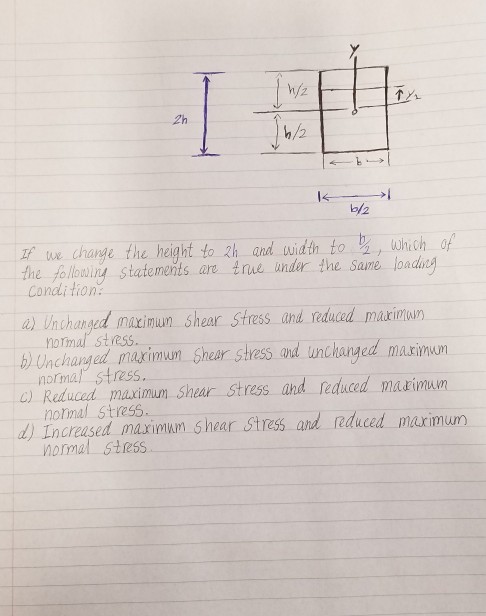 Y
h/2
y₂
2h
h/2
b
b/2
If we change the height to 2h and width to b/2, which of
the following statements are true under the same loading
Condition:
a) Unchanged maximum shear stress and reduced maximum
normal stress.
b) Unchanged maximum shear stress and unchanged maximum
normal stress.
c) Reduced maximum shear stress and reduced maximum
normal stress.
d) Increased maximum shear stress and reduced maximum
normal stress.